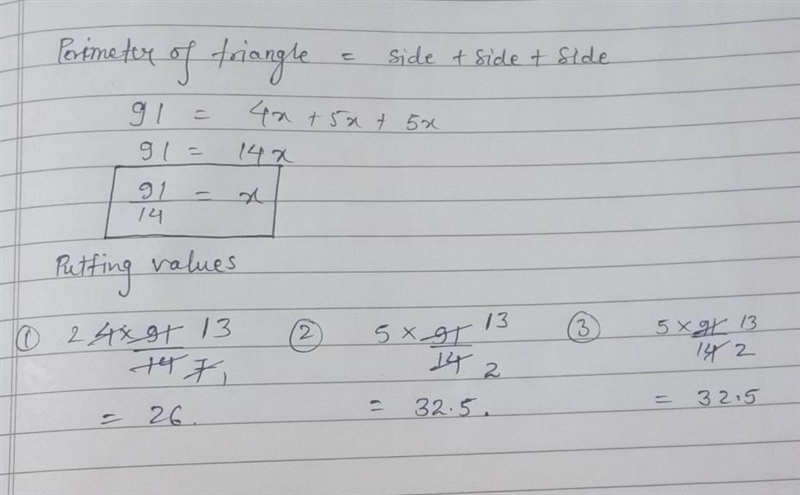 Perimeter of triangle = side + side + side
91 = 4x + 5x + 5x
91 = 14x
91/14 = x
Putting values
① 2 4×91 13 / 14 7 1 ② 5 × 91 13 / 14 2 ③ 5 × 91 13 / 14 2
= 26. = 32.5. = 32.5